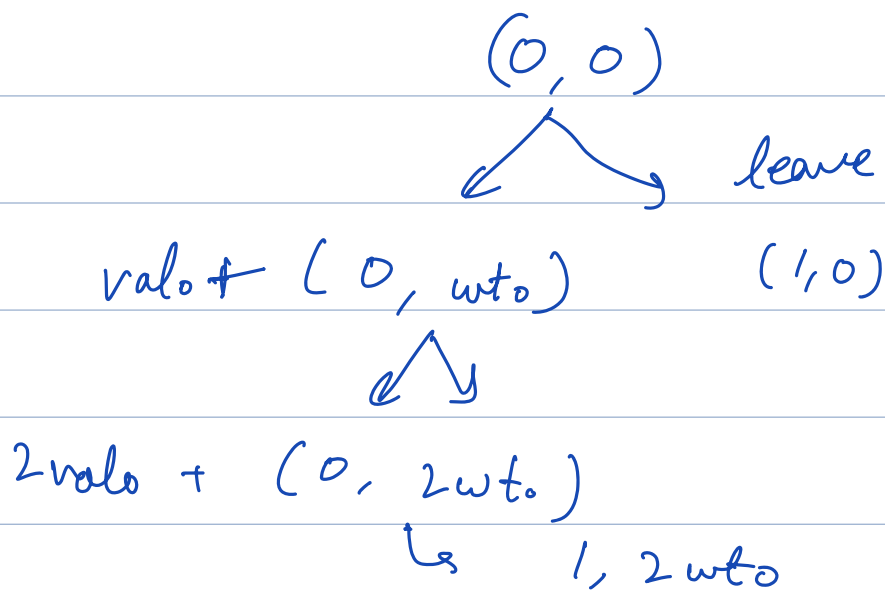 (0, 0)
leave
val₀ + (0, wt₀) (1, 0)
2val₀ + (0, 2wt₀)
1, 2wt₀